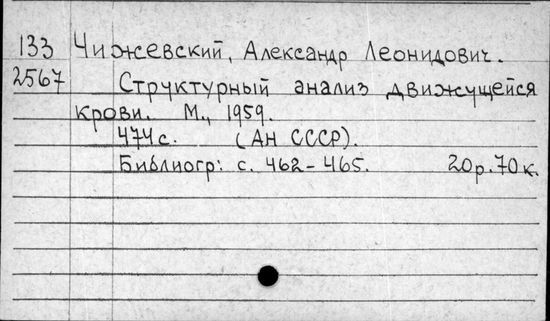 133 Чижевский, Александр Леонидович.
2567 Структурный анализ движущейся
крови. М., 1959.
474 с. (АН СССР).
Библиогр: с. 462-465. 20р.70к.